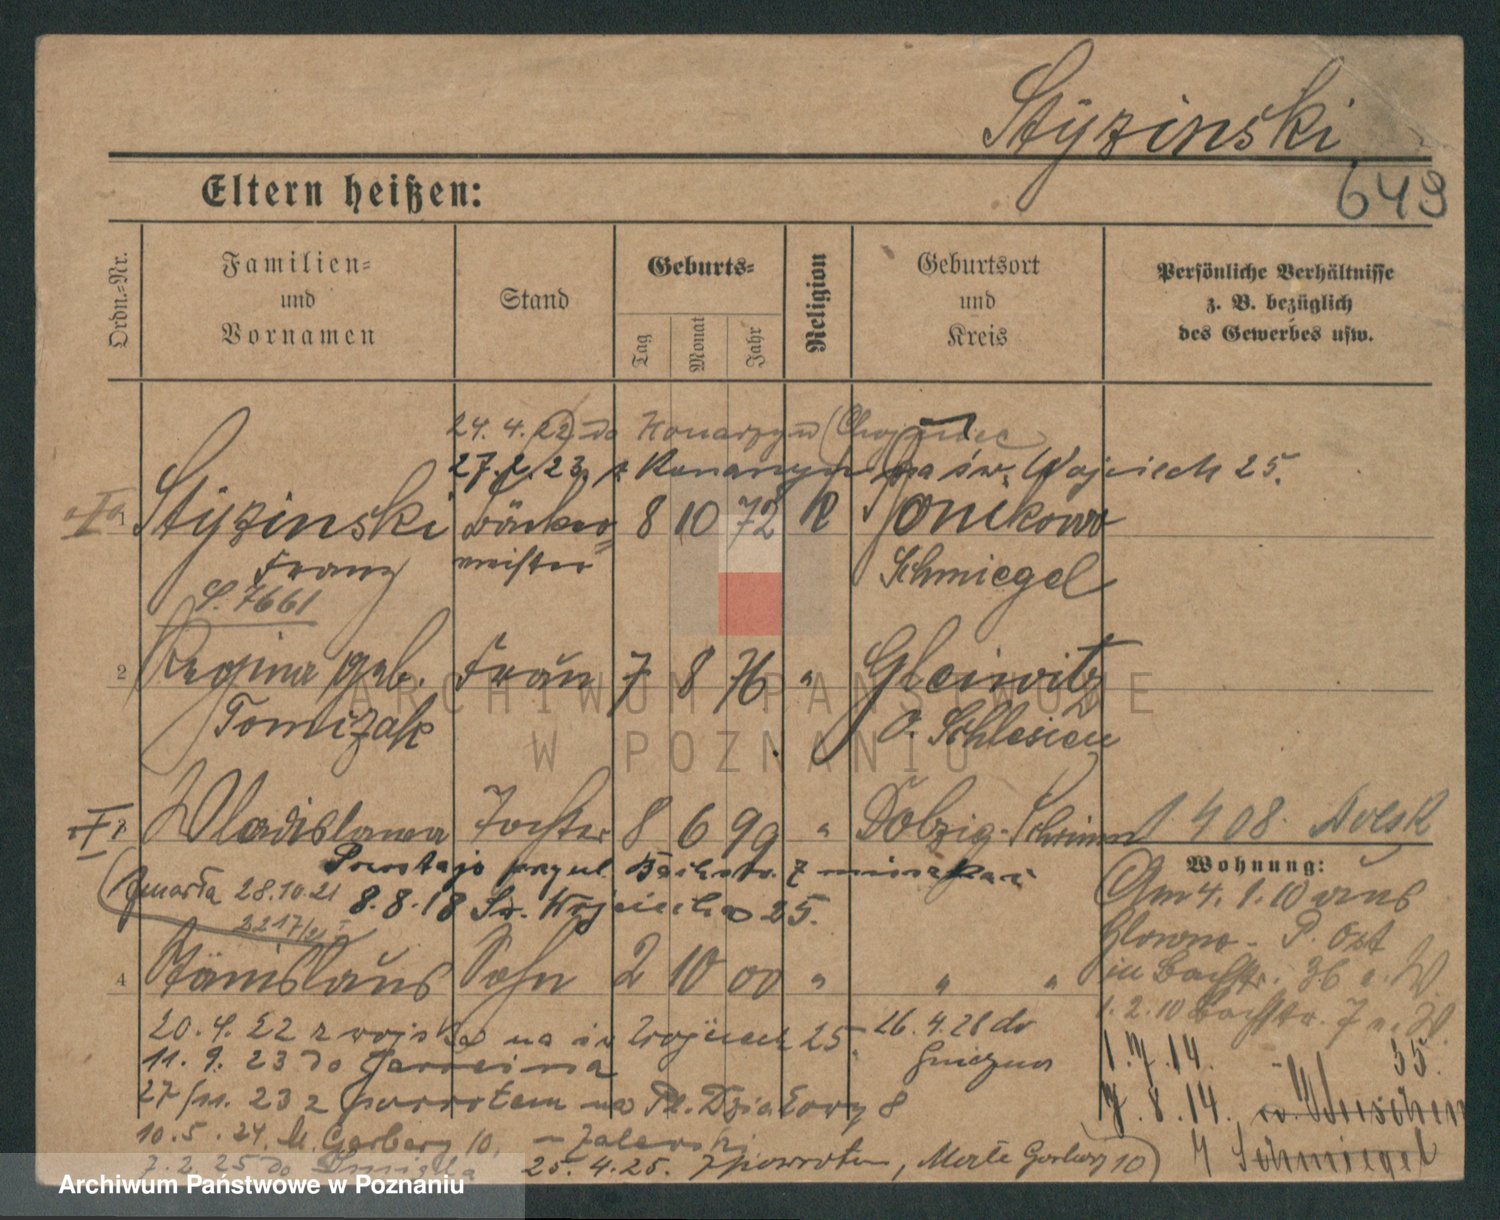 Styzinski
649
Eltern heißen:
Ordn.-Nr.
Familien-
und
Vornamen
Stand
Geburts-
Tag
Monat
Jahr
Religion
Geburtsort
und
Kreis
Persönliche Verhältnisse
z. B. bezüglich
des Gewerbes usw.
24. 4. 22 do Konarzyn
27. 2. 23. z Konarzyn na św. Wojciech 25.
1 Styzinski Bäcker 8 10 72 K Ponikowo
Franz meister Schmiegel
S. 7661
2 Regina geb. Frau 7 8 76 " Gleiwitz
Tomizak O. Schlesien
3 Wladislawa Tochter 8 6 99 " Dolzig-Schrimm 1 4 08.
Pozostaje przy ul. Bachstr. 7
Wohnung:
umarła 28.10.21 8.8.18 Św. Wojciecha 25.
2217/21
Am 4. 1. 10 aus
Glowno - P. Ost
4 Stanislaus Sohn 2 10 00 " " "
in Bachstr. 36 a. W
1. 2. 10 Bachstr. 7 a. W.
20. 4. 22 z wojska na św Wojciech 25 26. 4. 28 do
Gniezna
11. 9. 23 do Jarocina
1. 7. 14. - 35.
27/11. 23 z powrotem na Pl. Działowy 8
7. 8. 14.
10. 5. 24. M. Garbary 10,
7. 2. 25 do 25. 4. 25. z powrotem, Małe Garbary 10
Schmiegel
ARCHIWUM PAŃSTWOWE
W POZNANIU
Archiwum Państwowe w Poznaniu